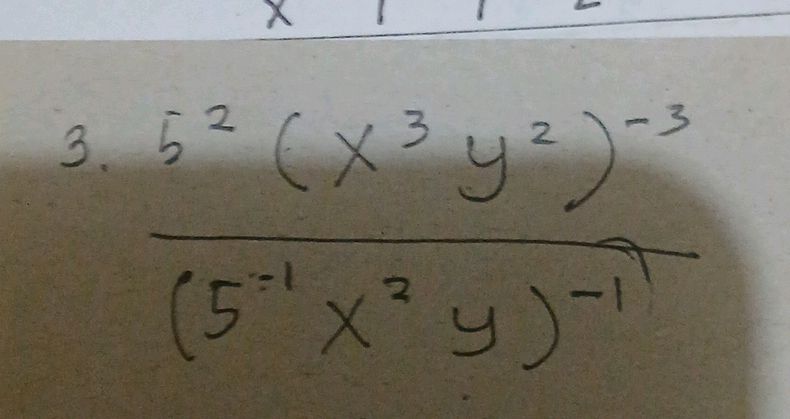 3. 5² (x³ y²)⁻³
(5⁻¹ x² y)⁻¹